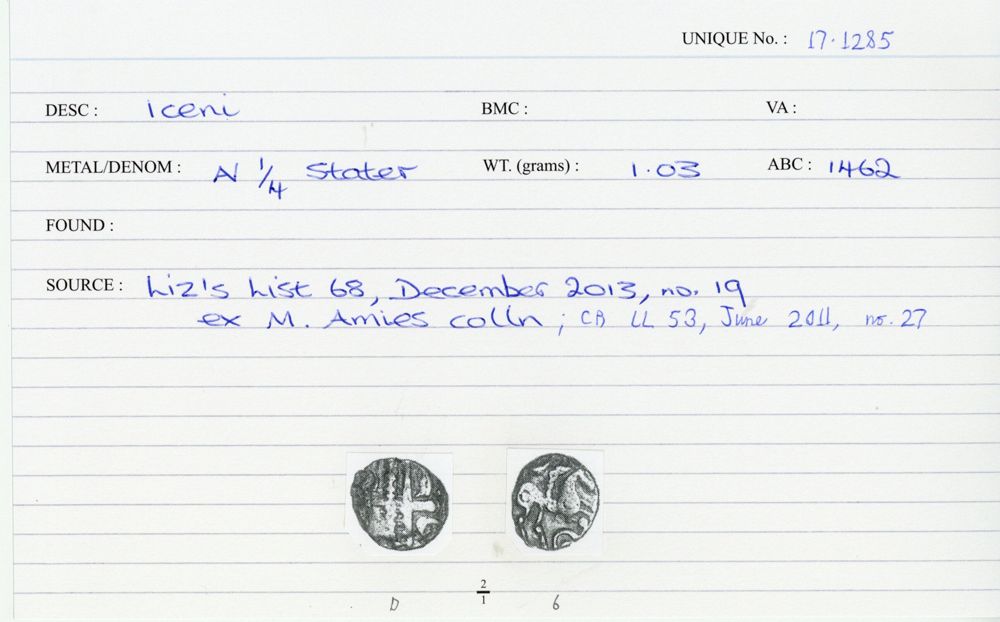 UNIQUE No. : 17.1285
DESC : Iceni BMC : VA :
METAL/DENOM : N 1/4 Stater WT. (grams) : 1.03 ABC : 1462
FOUND :
SOURCE : Liz's List 68, December 2013, no. 19
ex M. Amies colln ; CB LL 53, June 2011, no. 27
2
1
D 6